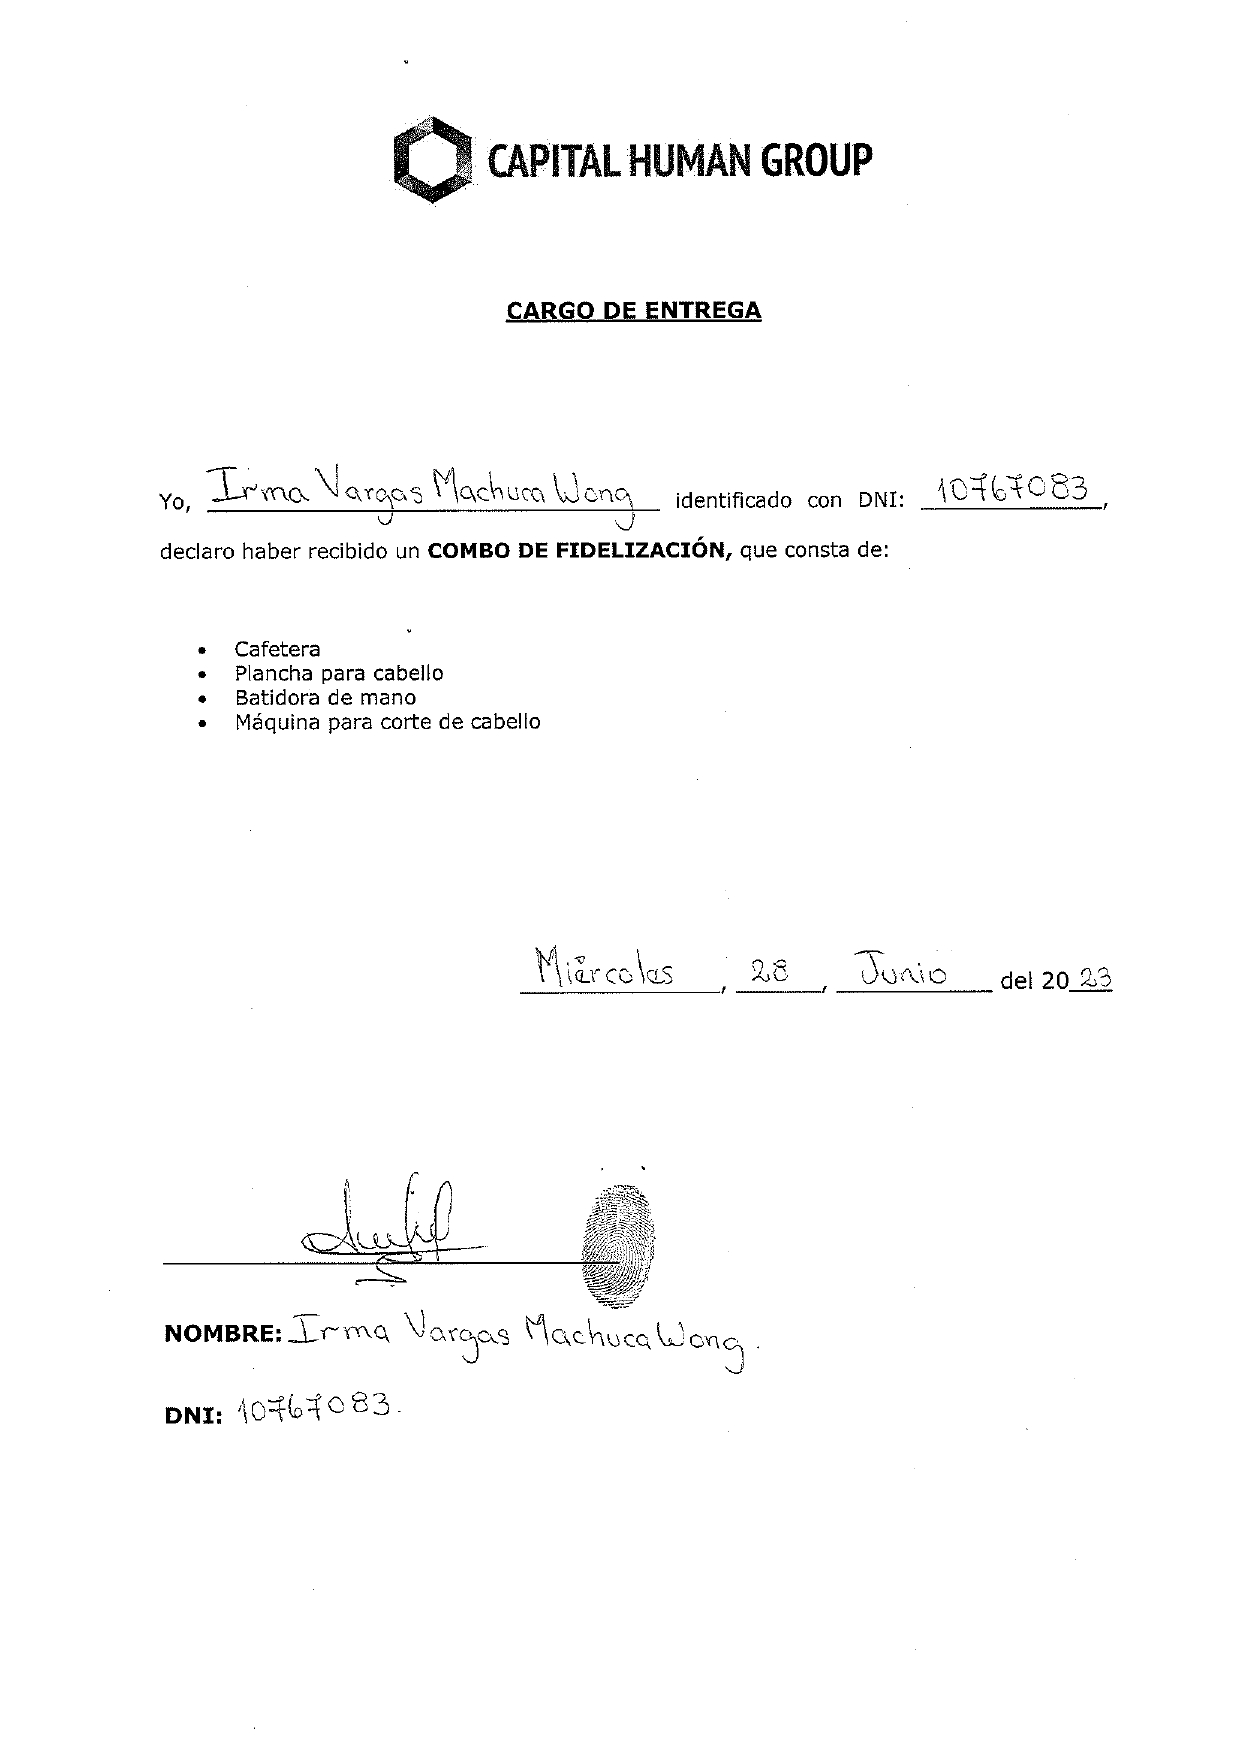 CAPITAL HUMAN GROUP
CARGO DE ENTREGA
Yo, Irma Vargas Machuca Wong identificado con DNI: 10767083,
declaro haber recibido un COMBO DE FIDELIZACIÓN, que consta de:
• Cafetera
• Plancha para cabello
• Batidora de mano
• Máquina para corte de cabello
Miércoles, 28, Junio del 2023
NOMBRE: Irma Vargas Machuca Wong.
DNI: 10767083.